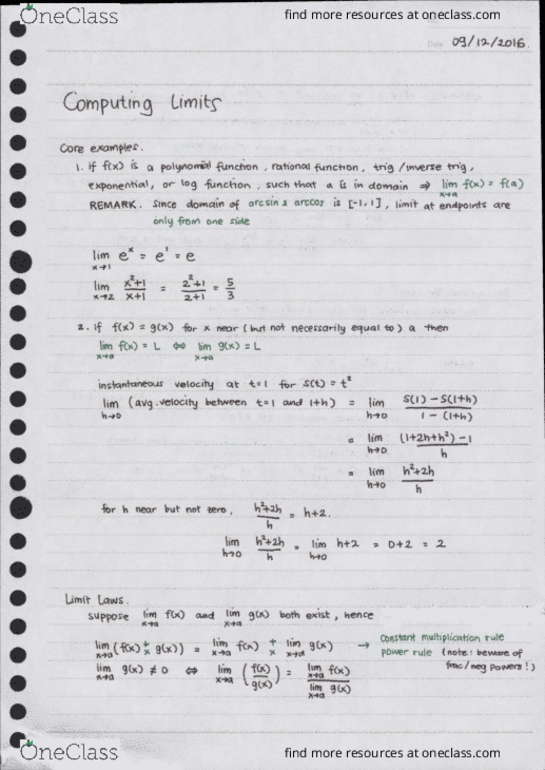 OneClass
find more resources at oneclass.com
Date 09/12/2016.
Computing Limits
Core examples.
1. if f(x) is a polynomial function, rational function, trig/inverse trig,
exponential, or log function, such that a is in domain ⇒ lim x→a f(x) = f(a)
REMARK. since domain of arcsin & arccos is [-1,1], limit at endpoints are
only from one side
lim x→1 e^x = e^1 = e
lim x→2 (x²+1)/(x+1) = (2²+1)/(2+1) = 5/3
2. if f(x) = g(x) for x near (but not necessarily equal to) a then
lim x→a f(x) = L ⇔ lim x→a g(x) = L
instantaneous velocity at t=1 for s(t) = t²
lim h→0 (avg. velocity between t=1 and 1+h) = lim h→0 (S(1) - S(1+h))/(1-(1+h))
= lim h→0 ((1+2h+h²)-1)/h
= lim h→0 (h²+2h)/h
for h near but not zero, (h²+2h)/h = h+2.
lim h→0 (h²+2h)/h = lim h→0 h+2 = 0+2 = 2
Limit Laws.
suppose lim x→a f(x) and lim x→a g(x) both exist, hence
lim x→a (f(x) +/× g(x)) = lim x→a f(x) +/× lim x→a g(x) → constant multiplication rule
power rule (note: beware of
frac/neg powers!)
lim x→a g(x) ≠ 0 ⇔ lim x→a (f(x)/g(x)) = lim x→a f(x) / lim x→a g(x)
OneClass
find more resources at oneclass.com